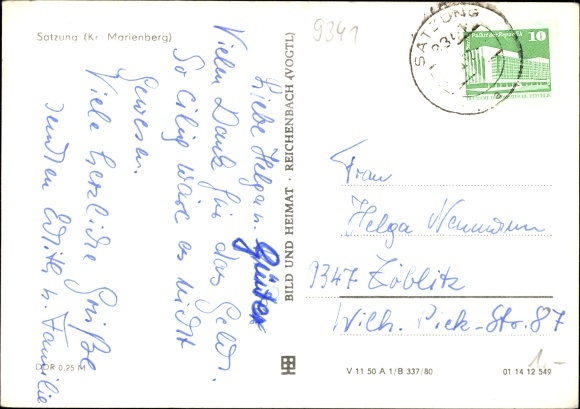 Satzung (Kr. Marienberg)
9341
SATZUNG
9341
Palast der Republik
10
Liebe Helga u. Günter
Vielen Dank für das Geld.
So eilig wäre es nicht
gewesen.
Viele herzliche Grüße
senden Edith u. Familie
BILD UND HEIMAT · REICHENBACH (VOGTL)
Frau
Helga Neumann
9347 Zöblitz
Wilh. Pieck-Str. 87
DDR 0,25 M
V 11 50 A 1/B 337/80
01 14 12 549
1,-